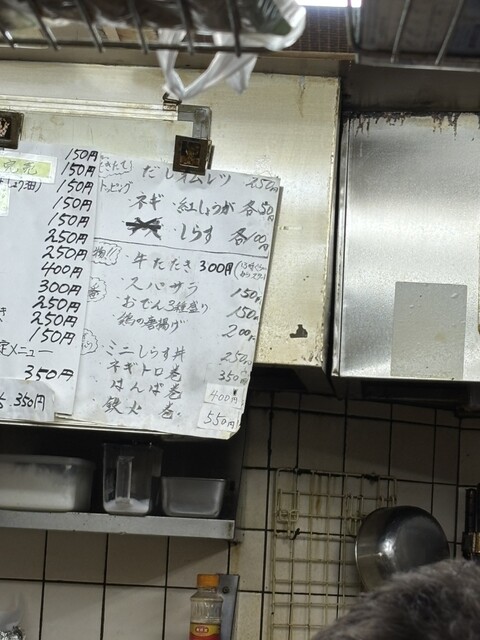 150円
150円
150円
150円
150円
250円
250円
400円
300円
250円
250円
150円
定メニュー
350円
350円
だしオムレツ 250円
トッピング
ネギ・紅しょうが 各50円
しらす 各100円
牛たたき 300円
スパサラ 150円
おでん3種盛り 150円
鶏の唐揚げ 200円
ミニしらす丼 250円
ネギトロ巻 350円
400円
鉄火巻 550円